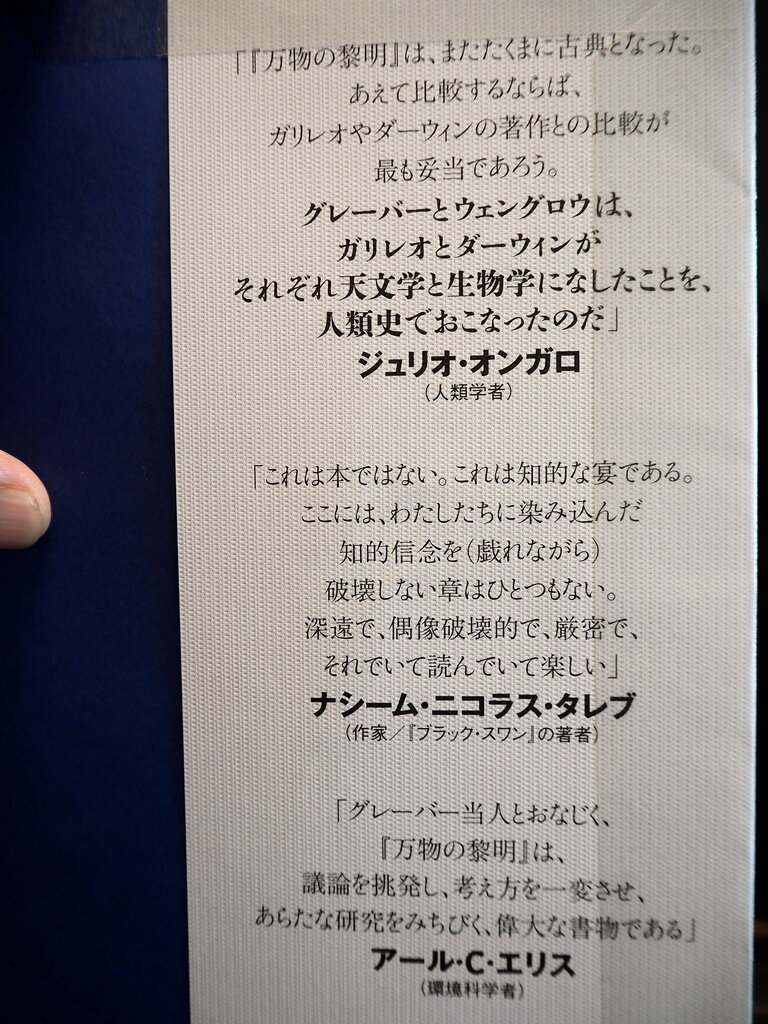 「『万物の黎明』は、またたくまに古典となった。
あえて比較するならば、
ガリレオやダーウィンの著作との比較が
最も妥当であろう。
グレーバーとウェングロウは、
ガリレオとダーウィンが
それぞれ天文学と生物学になしたことを、
人類史でおこなったのだ」
ジュリオ・オンガロ
（人類学者）
「これは本ではない。これは知的な宴である。
ここには、わたしたちに染み込んだ
知的信念を（戯れながら）
破壊しない章はひとつもない。
深遠で、偶像破壊的で、厳密で、
それでいて読んでいて楽しい」
ナシーム・ニコラス・タレブ
（作家／『ブラック・スワン』の著者）
「グレーバー当人とおなじく、
『万物の黎明』は、
議論を挑発し、考え方を一変させ、
あらたな研究をみちびく、偉大な書物である」
アール・C・エリス
（環境科学者）